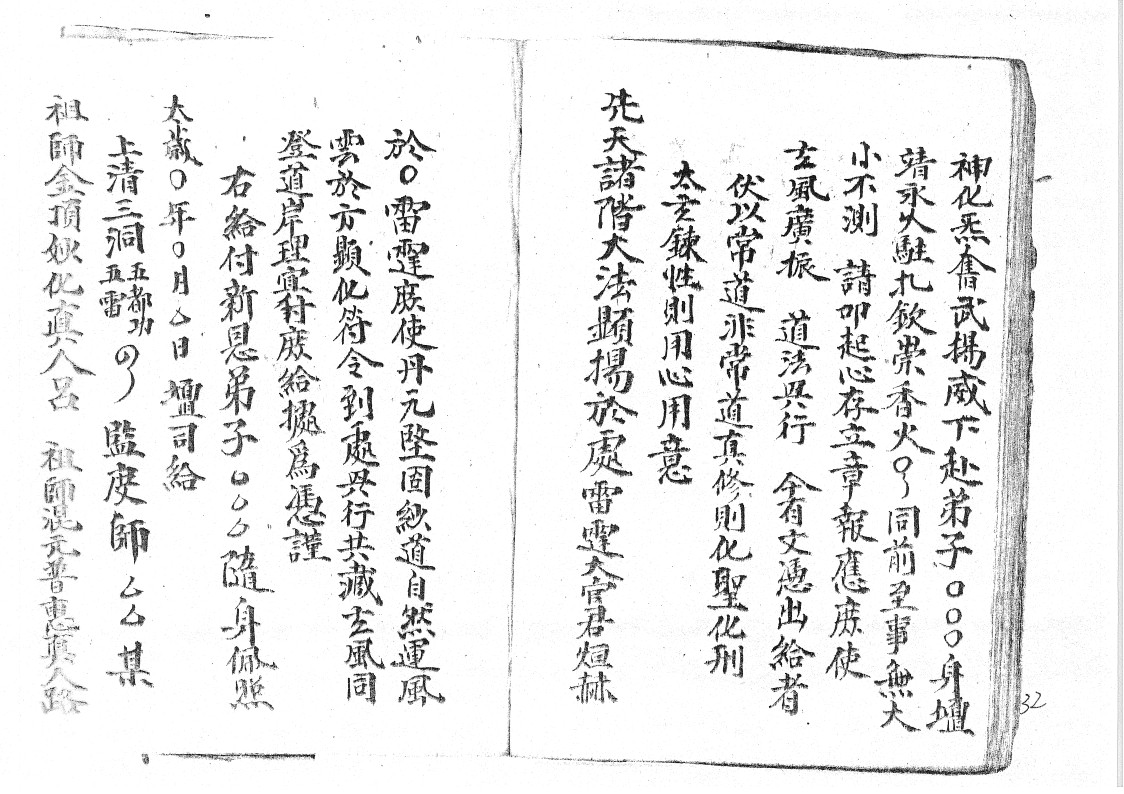 神化炁奮武揚威下赴弟子〇〇〇身壇
靖永久駐扎欽崇香火〇同前至事無大
小不測　請叩起心存立章報應庶使
玄風廣振　道法興行　今有文憑出給者
伏以常道非常道真修則化聖化刑
太玄鍊性則用心用意
先天諸階大法顯揚於處雷霆大官君烜赫
於〇雷霆庶使丹元堅固紗道自然運風
雲於方顯化符令到處興行共藏玄風同
登道岸理宜對庶給攄爲憑謹
右給付新恩弟子〇〇〇隨身佩照
太歲〇年〇月厶日壇司給
上清三洞五都功五雷　監度師厶厶某
祖師金頂妙化真人呂　祖師混元普惠真人路
32